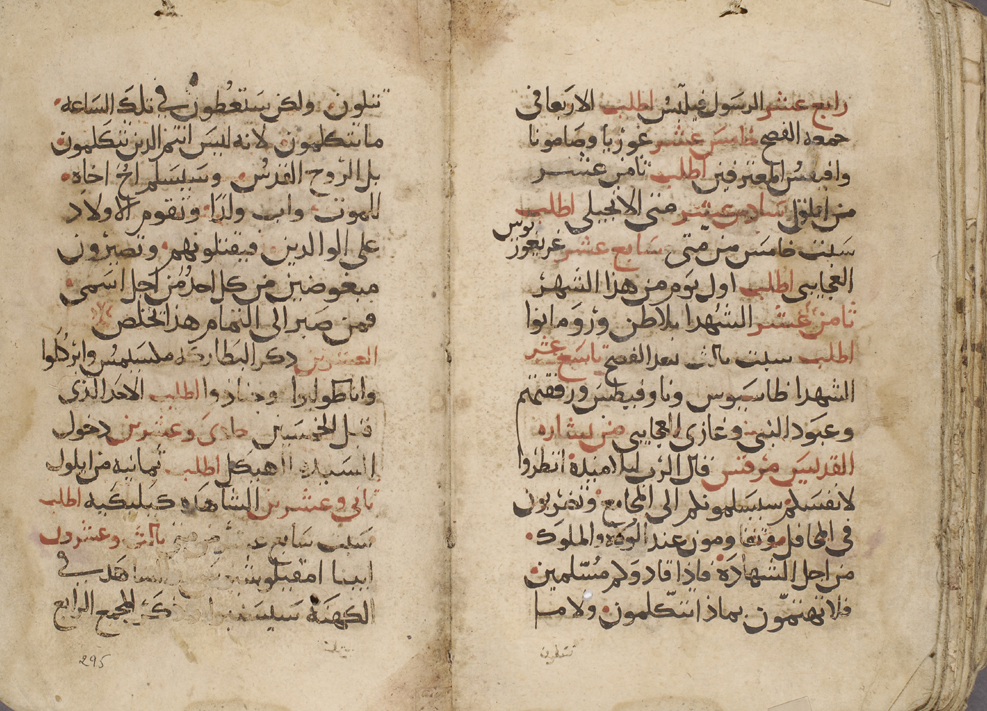 رابع عشر الرسول فيلبس اطلب الاربعا في
جمعه الفصح خامس عشر غوريا وصامونا
وافيفس المعترفين اطلب ثامن عشر
من ايلول سادس عشر متى الانجيلي اطلب
سبت خامس من متى سابع عشر غريغوريوس
العجايبي اطلب اول يوم من هذا الشهر
ثامن عشر الشهدا بلاطن ورومانوا
اطلب سبت ثالث بعد الفصح تاسع عشر
الشهدا ورفقتهم
وعبود النبي العجايبي من بشاره
القديس مرقس قال الرب لتلاميذه انظروا
لانفسكم سيسلمونكم الى المجامع وتضربون
في المحافل وتقفا ومون عند الولاة والملوك
من اجل الشهادة فاذا قادوكم مسلمين
فلا تهتمون بماذا تتكلمون ولا ما
تتلون
تتلون ولكن ستعطون في تلك الساعه
ما تتكلمون لانه ليس انتم الذين تتكلمون
بل الروح القدس وسيسلم اخ اخاه
للموت واب ولدا وتقوم الاولاد
على الوالدين فيقتلونهم وتصيرون
مبغوضين من كل احد من اجل اسمي
فمن صبر الى التمام هذا يخلص
العشرين ذكر البطاركه مكسيمس وابركلوا
واناطوليوا اطلب الاحد الذي
قبل الخمسين حادي وعشرين دخول
السيده الهيكل اطلب ثمانيه من ايلول
ثاني وعشرين الشاهده كيليكيه اطلب
سبت سابع عشر من متى ثالث وعشرون
ابينا امفيلوشيوس في
الكهنة المجمع الرابع
295